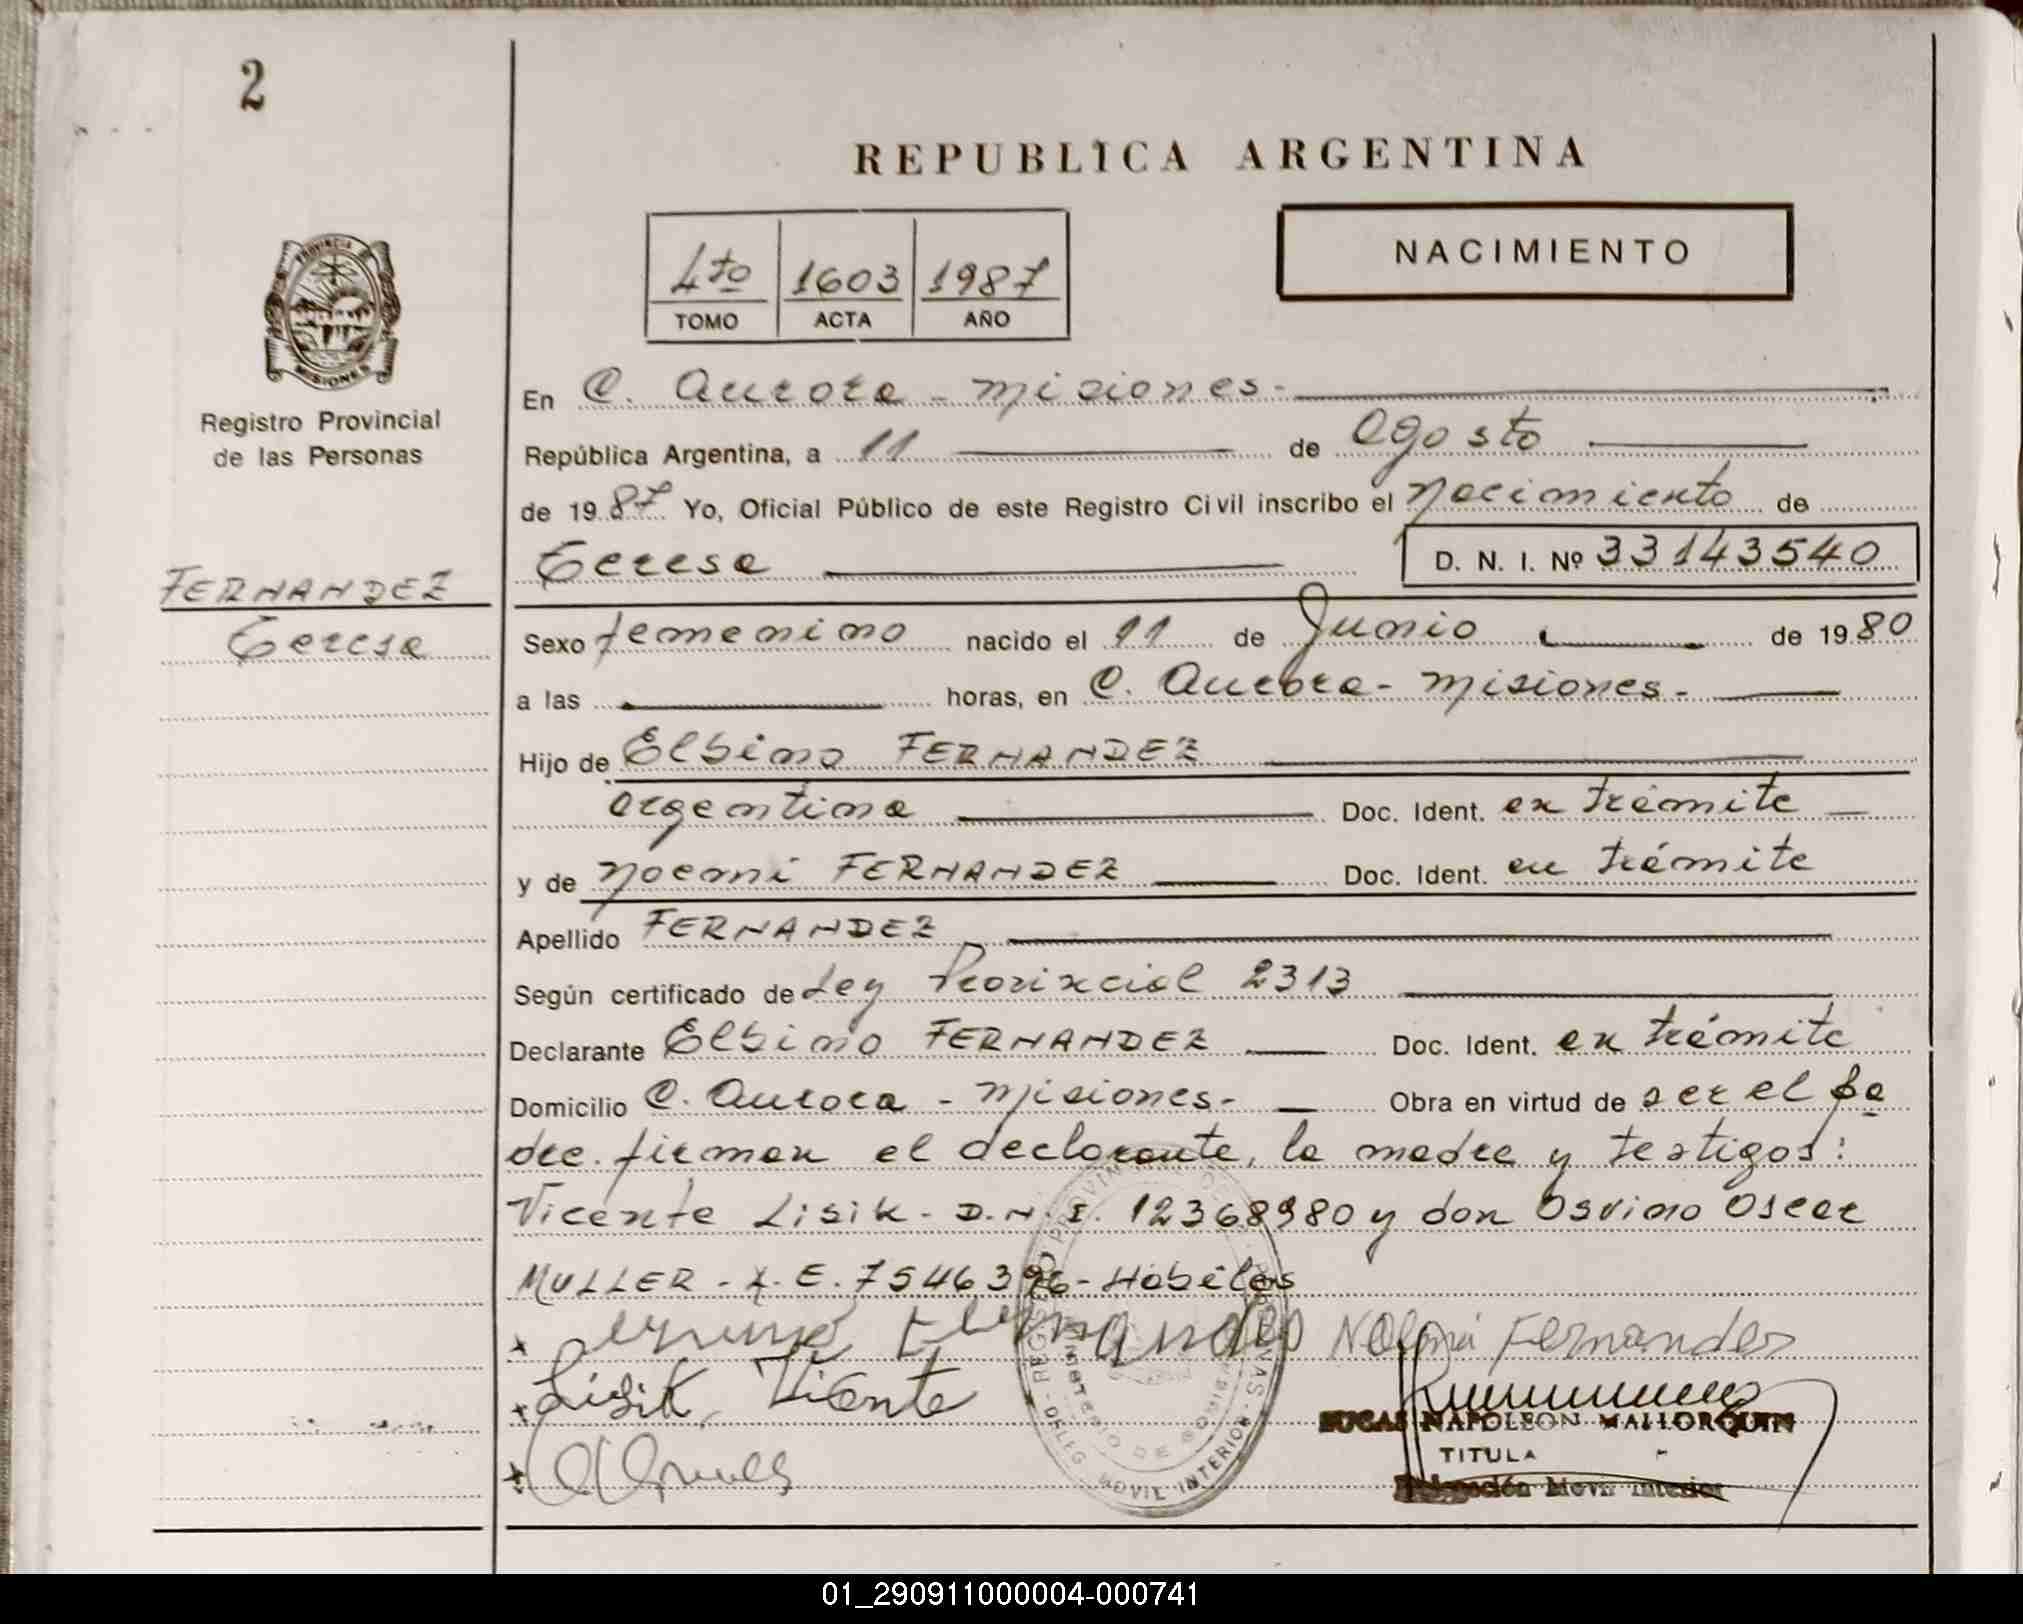 2
REPUBLICA ARGENTINA
4to 1603 1987
TOMO ACTA AÑO
NACIMIENTO
PROVINCIA
MISIONES
Registro Provincial
de las Personas
FERNANDEZ
Teresa
En C. Aurora - Misiones -
República Argentina, a 11 de Agosto
de 1987 Yo, Oficial Público de este Registro Civil inscribo el Nacimiento de
Teresa D. N. I. Nº 33143540
Sexo femenino nacido el 11 de Junio de 1980
a las horas, en C. Aurora - Misiones -
Hijo de Elbino FERNANDEZ
argentina Doc. Ident. en trámite
y de Noemi FERNANDEZ Doc. Ident. en trámite
Apellido FERNANDEZ
Según certificado de Ley Provincial 2313
Declarante Elbino FERNANDEZ Doc. Ident. en trámite
Domicilio C. Aurora - Misiones - Obra en virtud de ser el pa
dre. firman el declarante, la madre y testigos:
Vicente Lisik - D.N.I. 12368980 y don Osvino Oscar
MULLER - L.E. 7546396 - Hábiles
Fernandes Noemá Fernandes
Lisik, Vicente
LUCAS NAPOLEON MALLORQUIN
TITULA
Delegación Movil Interior
DELEG MOVIL INTERIOR
01_290911000004-000741